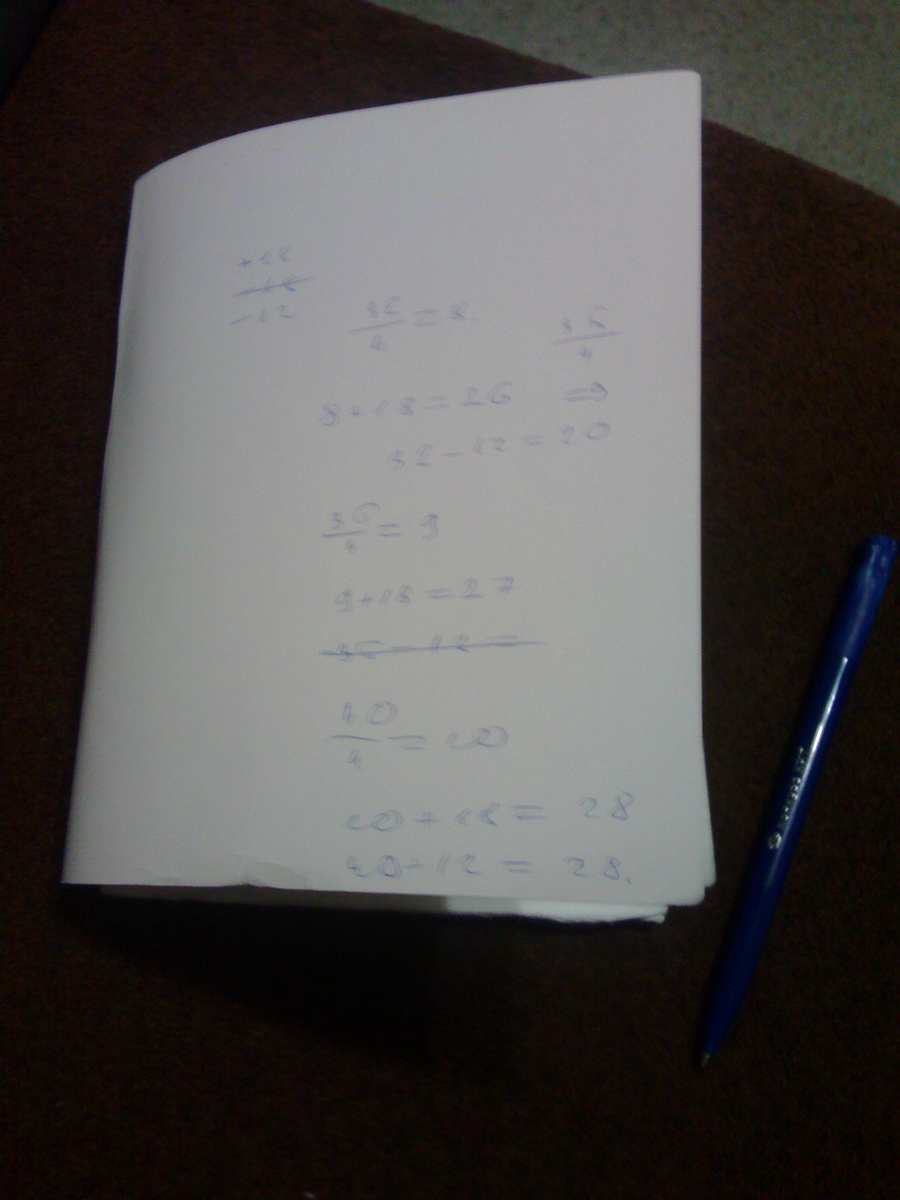 +18
-18
-12
32/4 = 8
36/4
8+18=26 ⇒
32-12=20
36/4 = 9
9+18=27
36-12=
40/4 = 10
10+18= 28
40-12 = 28.